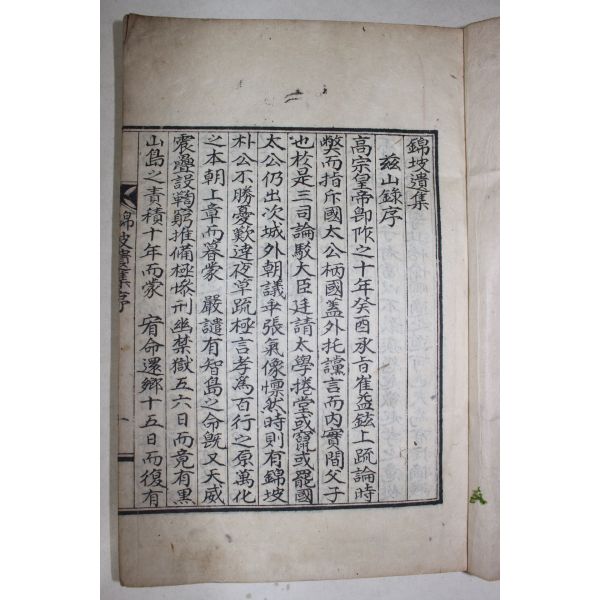 錦坡遺集
茲山錄序
高宗皇帝卽阼之十年癸酉承旨崔益鉉上疏論時
弊而指斥國太公柄國盖外托讜言而內實間父子
也於是三司論駁大臣廷請太學捲堂或竄或罷國
太公仍出次城外朝議乖張氣像懍然時則有錦坡
朴公不勝憂歎達夜草疏極言孝爲百行之原萬化
之本朝上章而暮蒙 嚴譴有智島之命旣又天威
震疊設鞫窮推備極慘刑幽禁獄五六日而竟有黑
山島之責積十年而蒙 宥命還鄉十五日而復有
錦坡遺集序
一